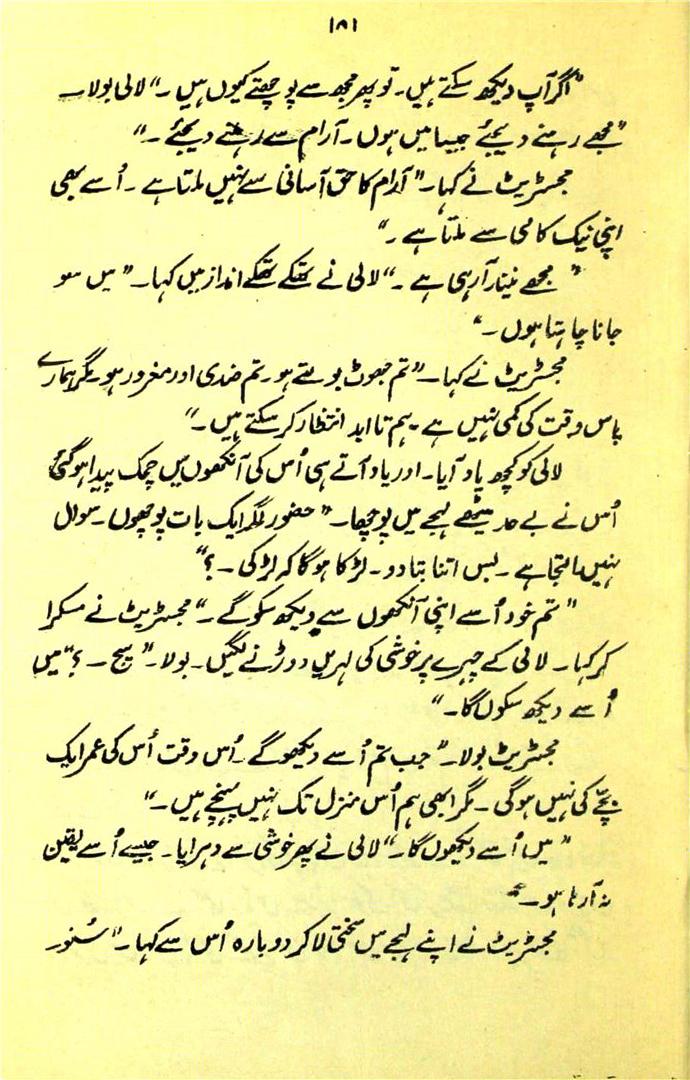 ۱۵۱
"اگر آپ دیکھ سکتے ہیں۔ تو پھر مجھ سے پوچھتے کیوں ہیں۔" لالی بولا۔
"مجھے رہنے دیجئے جیسا میں ہوں۔ آرام سے رہنے دیجئے۔"
مجسٹریٹ نے کہا۔ "آرام کا حق آسانی سے نہیں ملتا ہے۔ اُسے بھی
اپنی نیک کامی سے ملتا ہے۔"
"مجھے نیند آ رہی ہے۔" لالی نے تھکے تھکے انداز میں کہا۔ "میں سو
جانا چاہتا ہوں۔"
مجسٹریٹ نے کہا۔ "تم جھوٹ بولتے ہو۔ تم ضدی اور مغرور ہو۔ مگر ہمارے
پاس وقت کی کمی نہیں ہے۔ ہم تا ابد انتظار کر سکتے ہیں۔"
لالی کو کچھ یاد آیا۔ اور یاد آتے ہی اُس کی آنکھوں میں چمک پیدا ہو گئی
اُس نے بے حد میٹھے لہجے میں پوچھا۔ "حضور اگر ایک بات پوچھوں۔ سوال
نہیں التجا ہے۔ بس اتنا بتا دو۔ لڑکا ہوگا کہ لڑکی۔ ؟"
"تم خود اُسے اپنی آنکھوں سے دیکھ سکو گے۔" مجسٹریٹ نے مسکرا
کر کہا۔ لالی کے چہرے پر خوشی کی لہریں دوڑنے لگیں۔ بولا۔ "سچ۔ ؟" میں
اُسے دیکھ سکوں گا۔"
مجسٹریٹ بولا۔ "جب تم اُسے دیکھو گے۔ اُس وقت اُس کی عمر ایک
بچّے کی نہیں ہوگی۔ مگر ابھی ہم اُس منزل تک نہیں پہنچے ہیں۔"
"میں اُسے دیکھوں گا۔" لالی نے پھر خوشی سے دہرایا۔ جیسے اُسے یقین
نہ آ رہا ہو۔
مجسٹریٹ نے اپنے لہجے میں سختی لا کر دوبارہ اُس سے کہا۔ "سُنو۔